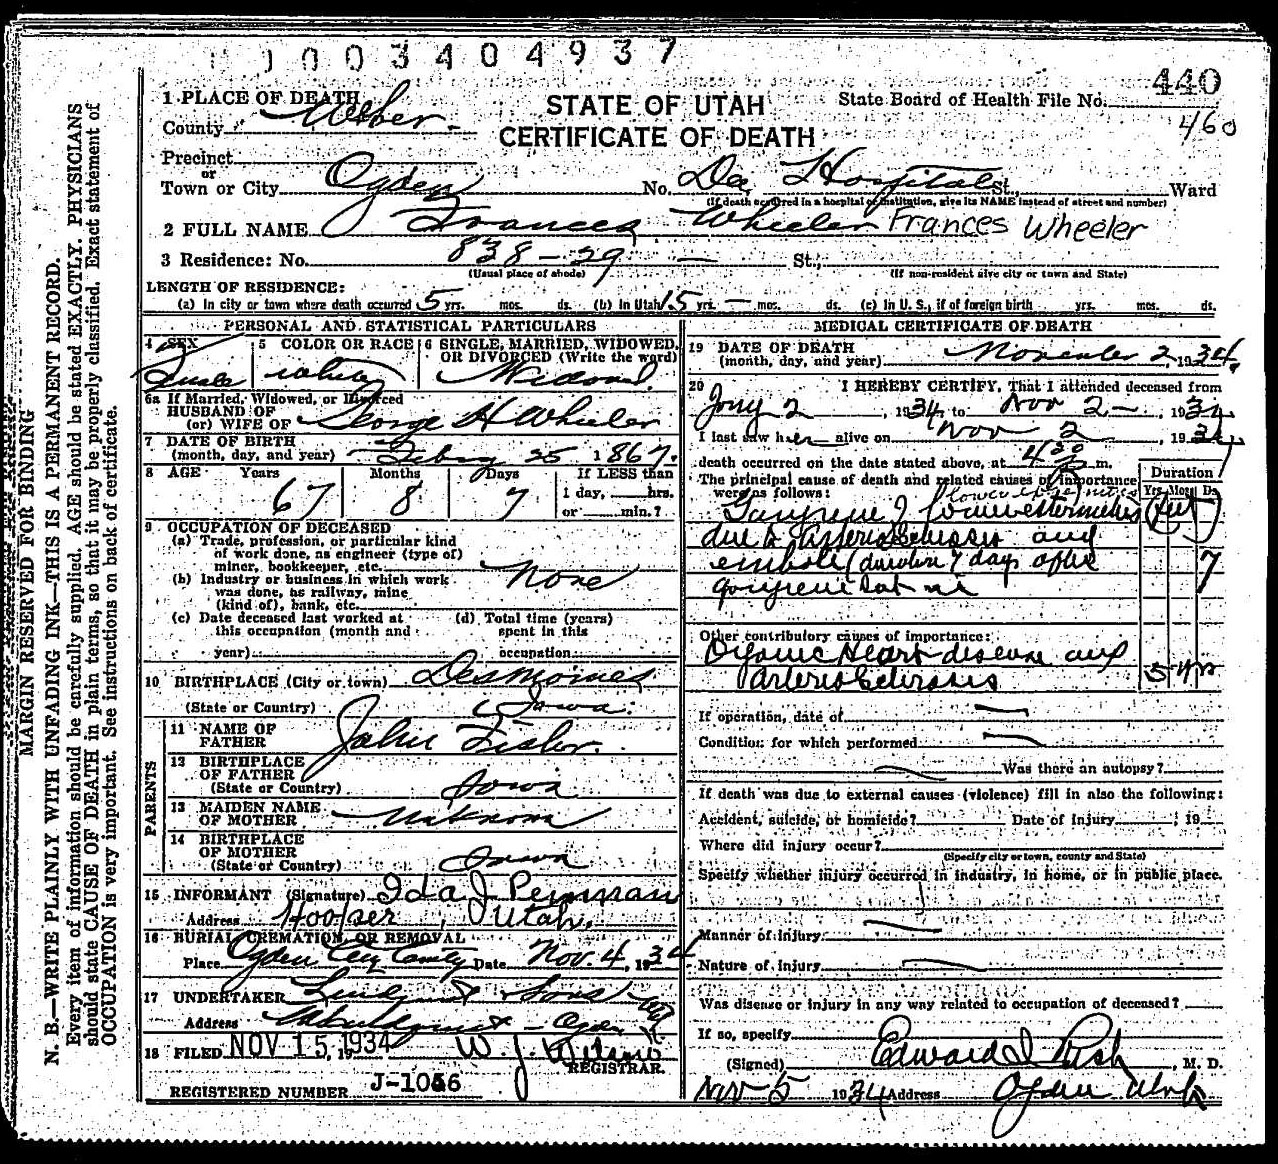 1 0 0 3 4 0 4 9 3 7
440
1 PLACE OF DEATH
STATE OF UTAH
State Board of Health File No.
County Weber
460
CERTIFICATE OF DEATH
Precinct
or
Town or City Ogden No. Dee Hospital St., Ward
(If death occurred in a hospital or institution, give its NAME instead of street and number)
2 FULL NAME Frances Wheeler Frances Wheeler
3 Residence: No. 838-29 — St.,
(Usual place of abode) (If non-resident give city or town and State)
LENGTH OF RESIDENCE:
(a) In city or town where death occurred 5 yrs. mos. ds. (b) In Utah 15 yrs. — mos. ds. (c) In U. S., if of foreign birth yrs. mos. ds.
PERSONAL AND STATISTICAL PARTICULARS
4 SEX
5 COLOR OR RACE
6 SINGLE, MARRIED, WIDOWED, OR DIVORCED (Write the word)
white Widowed.
6a If Married, Widowed, or Divorced
HUSBAND OF
(or) WIFE OF George H Wheeler
7 DATE OF BIRTH
(month, day, and year) 25 1867.
8 AGE Years Months Days If LESS than
67 8 7 1 day, hrs.
or min.?
9 OCCUPATION OF DECEASED
(a) Trade, profession, or particular kind
of work done, as engineer (type of)
miner, bookkeeper, etc.
None
(b) Industry or business in which work
was done, as railway, mine
(kind of), bank, etc.
(c) Date deceased last worked at
this occupation (month and
year)
(d) Total time (years)
spent in this
occupation
10 BIRTHPLACE (City or town) Des Moines
(State or Country) Iowa.
PARENTS
11 NAME OF
FATHER John
12 BIRTHPLACE
OF FATHER
(State or Country) Iowa
13 MAIDEN NAME
OF MOTHER Unknown
14 BIRTHPLACE
OF MOTHER
(State or Country) Iowa
15 INFORMANT (Signature) Ida J Penman
Address Hooper, Utah.
16 BURIAL, CREMATION, OR REMOVAL
Place Ogden City Date Nov. 4, 1934
17 UNDERTAKER Lindquist & Sons
Address Ogden
18 FILED NOV 15, 1934 W. J. Wilson
REGISTRAR.
REGISTERED NUMBER J-1056
MEDICAL CERTIFICATE OF DEATH
19 DATE OF DEATH
(month, day, and year) November 2, 1934.
20 I HEREBY CERTIFY, That I attended deceased from
2, 1934, to Nov 2 —, 1934
I last saw her alive on Nov 2, 1934
death occurred on the date stated above, at 4 30 m.
The principal cause of death and related causes of importance
were as follows:
Duration
Yrs. Mos. Ds.
lower extremities
Gangrene of (feet)
due to Arteriosclerosis and
emboli (duration 7 days after 7
gangrene set in
Other contributory causes of importance:
Organic Heart disease and
Arteriosclerosis 5 yrs
If operation, date of —
Condition for which performed —
— Was there an autopsy?
If death was due to external causes (violence) fill in also the following:
Accident, suicide, or homicide? Date of injury ; 19
Where did injury occur?
(Specify city or town, county and State)
Specify whether injury occurred in industry, in home, or in public place.
Manner of injury
Nature of injury
Was disease or injury in any way related to occupation of deceased?
If so, specify
(Signed) Edward I Rich, M. D.
Nov 5 1934 Address Ogden Utah
MARGIN RESERVED FOR BINDING
N. B.—WRITE PLAINLY WITH UNFADING INK—THIS IS A PERMANENT RECORD.
Every item of information should be carefully supplied. AGE should be stated EXACTLY. PHYSICIANS
should state CAUSE OF DEATH in plain terms, so that it may be properly classified. Exact statement of
OCCUPATION is very important. See instructions on back of certificate.